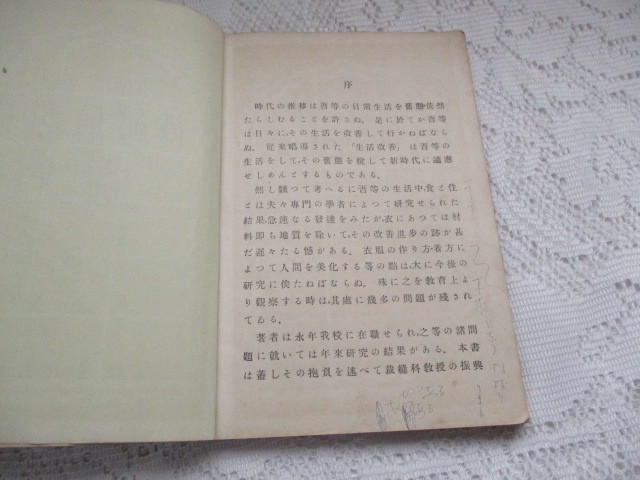 序
時代の推移は吾等の日常生活を舊態依然
たらしむることを許さぬ。是に於てか吾等
は日々に、その生活を改善して行かねばなら
ぬ。從來唱導された「生活改善」は吾等の
生活をして、その舊態を脫して新時代に適應
せしめんとするものである。
然し飜つて考へるに吾等の生活中、食と住
とは夫々專門の學者によつて研究せられた
結果、急速なる發達をみたが、衣にあつては材
料卽ち地質を除いて、その改善進步の跡が甚
だ遲々たる憾がある。衣服の作り方・着方に
よつて人間を美化する等の點は、大に今後の
研究に俟たねばならぬ。殊に之を敎育上よ
り觀察する時は、其處に幾多の問題が殘され
てゐる。
著者は永年我校に在職せられ、之等の諸問
題に就いては年來硏究の結果がある。本書
は蓋しその抱負を述べて裁縫科敎授の振興